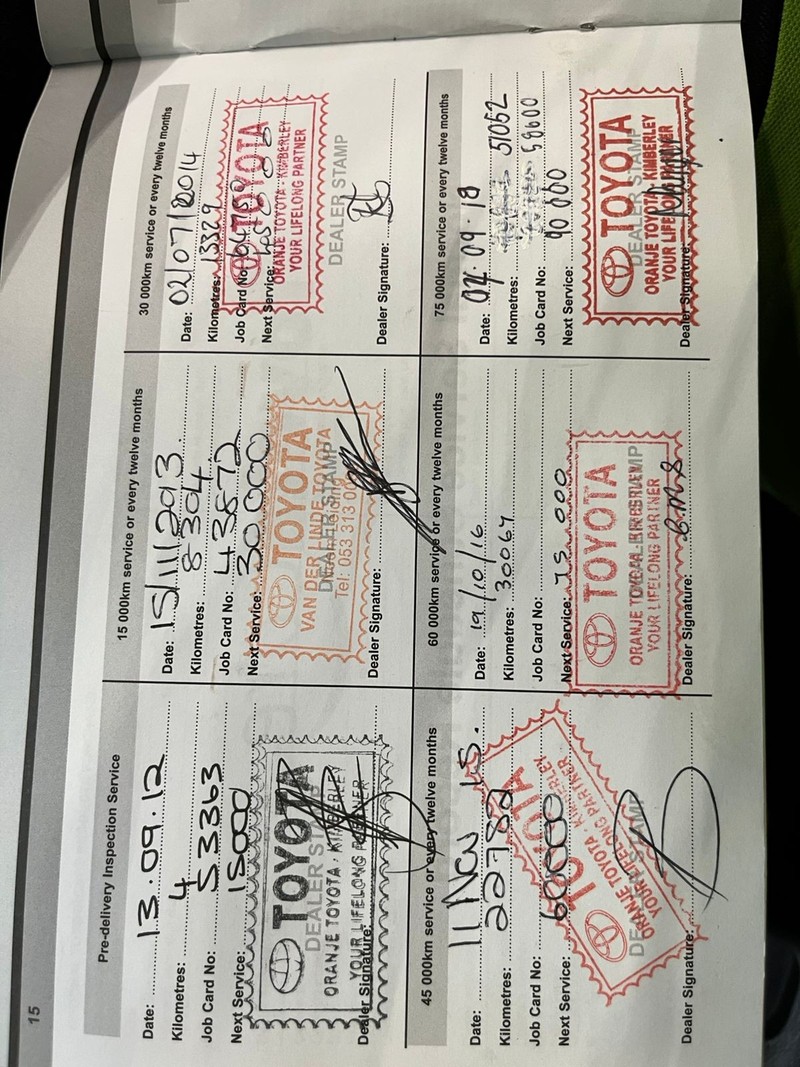 15
Pre-delivery Inspection Service
Date: 13.09.12
Kilometres: 4
Job Card No: 53363
Next Service: 15000
TOYOTA
DEALER STAMP
ORANJE TOYOTA · KIMBERLEY
YOUR LIFELONG PARTNER
Dealer Signature:
15 000km service or every twelve months
Date: 15/11/2013.
Kilometres: 8304
Job Card No: 43872
Next Service: 30 000
TOYOTA
VAN DER LINDE TOYOTA
DEALER STAMP
Tel: 053 313 0
Dealer Signature:
30 000km service or every twelve months
Date: 02/07/2014
Kilometres: 13329
Job Card No:
Next Service:
TOYOTA
ORANJE TOYOTA · KIMBERLEY
YOUR LIFELONG PARTNER
DEALER STAMP
Dealer Signature:
45 000km service or every twelve months
Date: 11 Nov 15.
Kilometres: 22782
Job Card No:
Next Service: 60000
TOYOTA
ORANJE TOYOTA · KIMBERLEY
YOUR LIFELONG PARTNER
DEALER STAMP
Dealer Signature:
60 000km service or every twelve months
Date: 19/10/16
Kilometres: 30067
Job Card No:
Next Service: 75 000
TOYOTA
ORANJE TOYOTA
DEALER STAMP
YOUR LIFELONG PARTNER
Dealer Signature:
75 000km service or every twelve months
Date: 02.09.18
Kilometres: 51052
Job Card No: 58600
Next Service: 90 000
TOYOTA
DEALER STAMP
ORANJE TOYOTA KIMBERLEY
YOUR LIFELONG PARTNER
Dealer Signature: